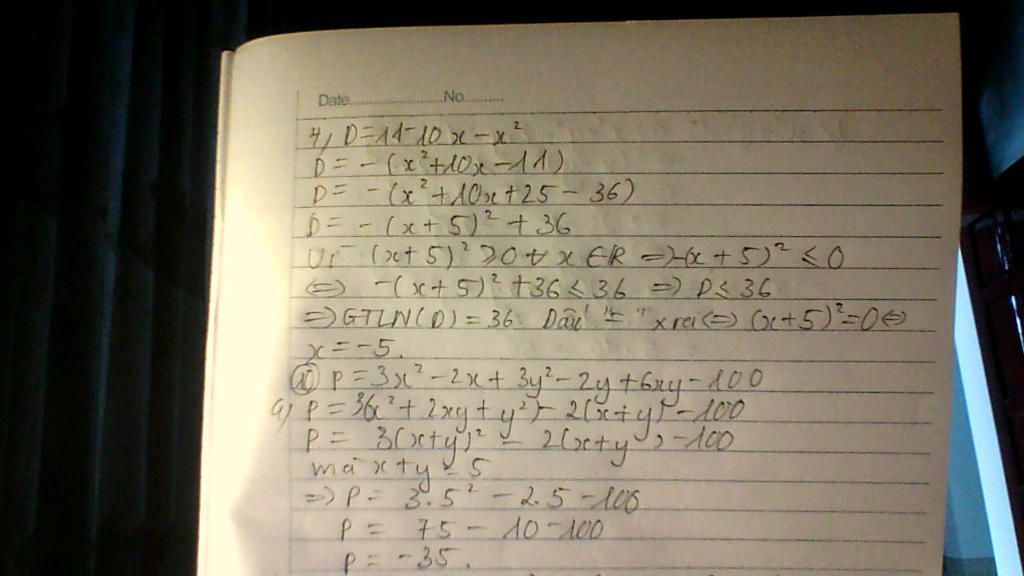 Date.....................No.........
4, D=11-10x-x²
D= -(x²+10x-11)
D= -(x²+10x+25-36)
D= -(x+5)²+36
Vì (x+5)²≥0 ∀x∈R ⇒-(x+5)²≤0
⇔ -(x+5)²+36≤36 ⇒ D≤36
⇒ GTLN(D)=36. Dấu "=" xra ⇔ (x+5)²=0⇔
x=-5.
P=3x²-2x+3y²-2y+6xy-100
a, P=3(x²+2xy+y²)-2(x+y)-100
P= 3(x+y)²-2(x+y)-100
mà x+y=5
⇒ P= 3.5²-2.5-100
P= 75-10-100
P= -35.